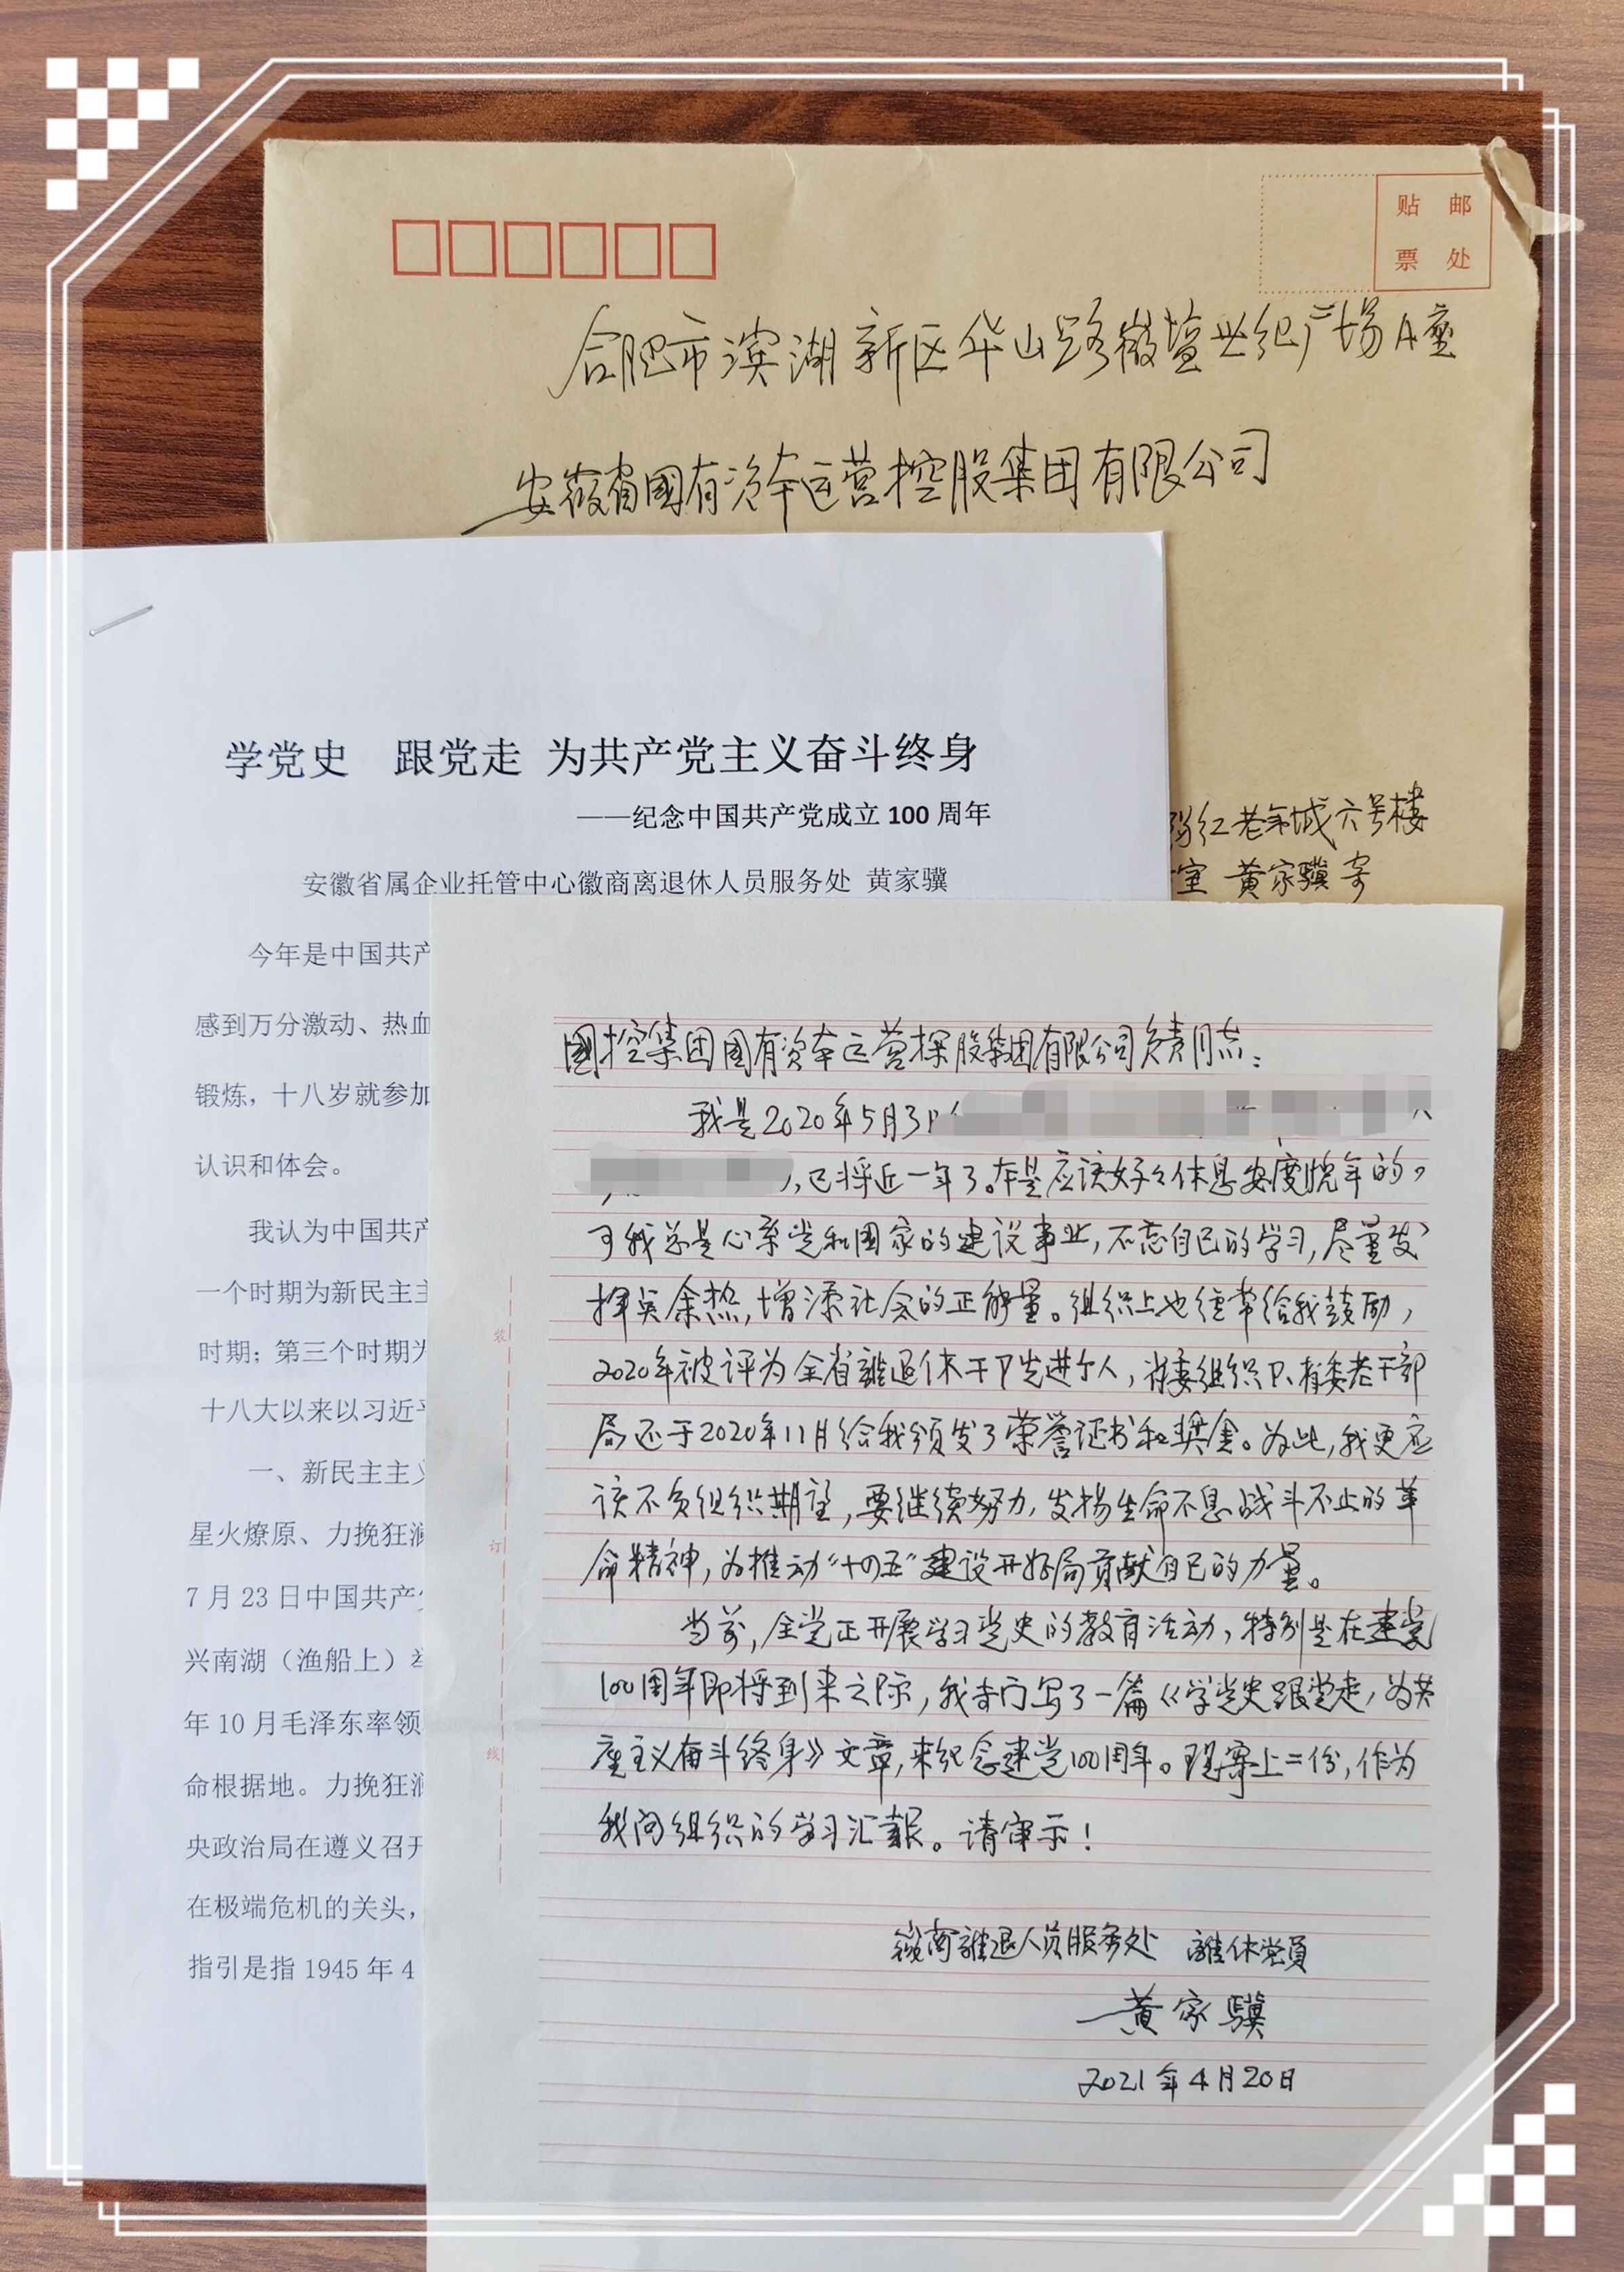 贴 邮
票 处
合肥市滨湖新区华山路徽盐世纪广场A座
安徽省國有资本运营控股集团有限公司
红老年城六号楼
室 黄家骥寄
学党史 跟党走 为共产党主义奋斗终身
——纪念中国共产党成立 100 周年
安徽省属企业托管中心徽商离退休人员服务处 黄家骥
今年是中国共产
感到万分激动、热血
锻炼，十八岁就参加
认识和体会。
我认为中国共产
一个时期为新民主主
时期；第三个时期为
十八大以来以习近平
一、新民主主义
星火燎原、力挽狂澜
7 月 23 日中国共产党
兴南湖（渔船上）举
年 10 月毛泽东率领
命根据地。力挽狂澜
央政治局在遵义召开
在极端危机的关头，
指引是指 1945 年 4
國控集团國有资本运营控股集团有限公司负责同志：
我是2020年5月3日
，已将近一年了。本是应该好々休息安度晚年的，
可我总是心系党和国家的建设事业，不忘自己的学习，尽量发
挥其余热，增添社会的正能量。组织上也经常给我鼓励，
2020年被评为全省離退休干卩先进个人，省委组织卩、省委老干部
局还于2020年11月给我颁发了荣誉证书和奖金。为此，我更应
该不负组织期望，要继续努力，发扬生命不息战斗不止的革
命精神，为推动“十四五”建设开好局贡献自己的力量。
当前，全党正开展学习党史的教育活动，特别是在建党
100周年即将到来之际，我专门写了一篇《学党史跟党走，为共
产主义奋斗终身》文章，来纪念建党100周年。现寄上二份，作为
我向组织的学习汇报。请审示！
徽商離退人员服务处 離休党員
黄家骥
2021年4月20日
装
订
线